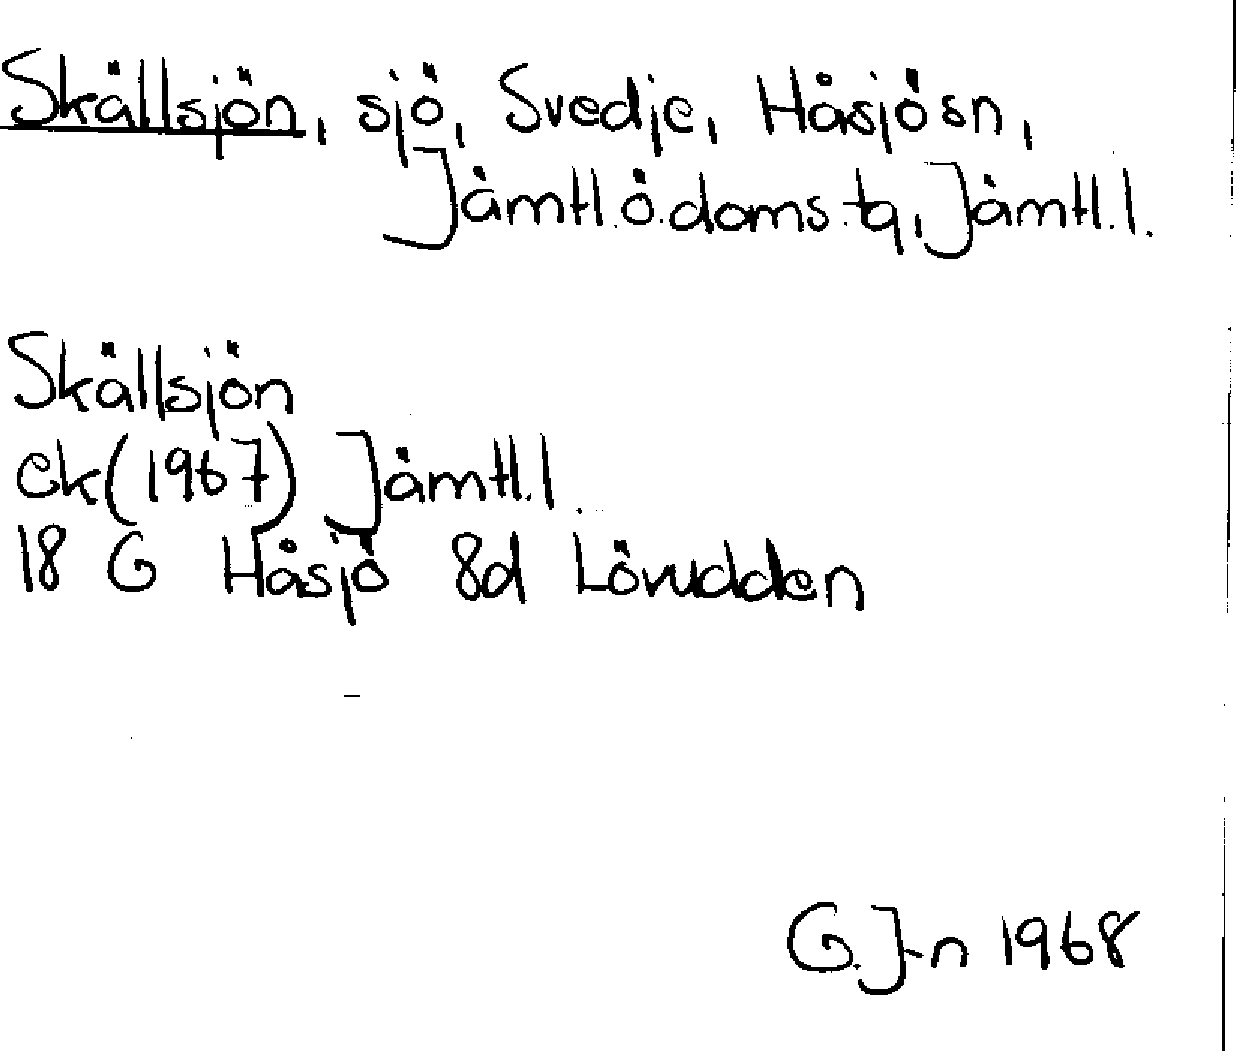 Skällsjön, sjö, Svedje, Håsjö sn,
Jämtl. ö. doms. tg, Jämtl. l.
Skällsjön
ek (1967) Jämtl. l.
18 G Håsjö 8d Lövudden
G. J-n 1968